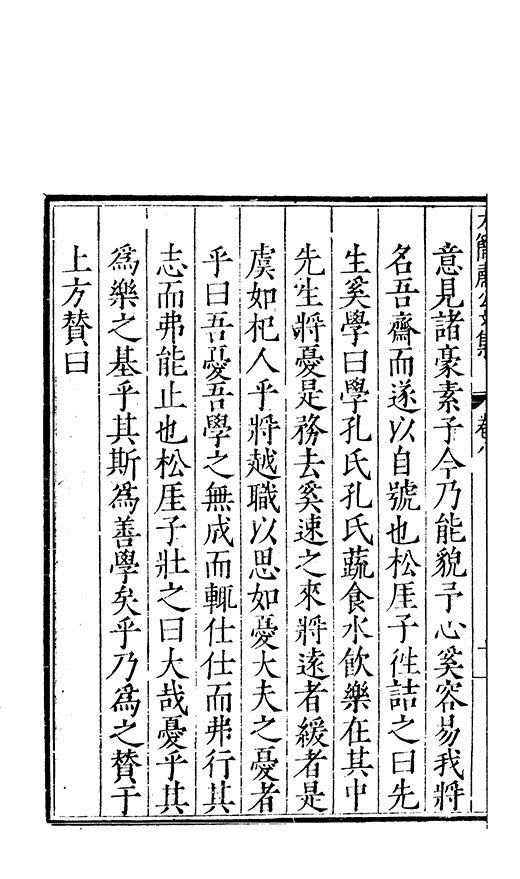 意見諸豪素子今乃能貌予心奚容易我將
名吾齋而遂以自號也松厓子徃詰之曰先
生奚學曰學孔氏孔氏蔬食水飲樂在其中
先生將憂是務去奚速之來將遠者緩者是
虞如杞人乎將越職以思如憂大夫之憂者
乎曰吾憂吾學之無成而輒仕仕而弗行其
志而弗能止也松厓子壯之曰大哉憂乎其
為樂之基乎其斯為善學矣乎乃為之賛于
上方賛曰